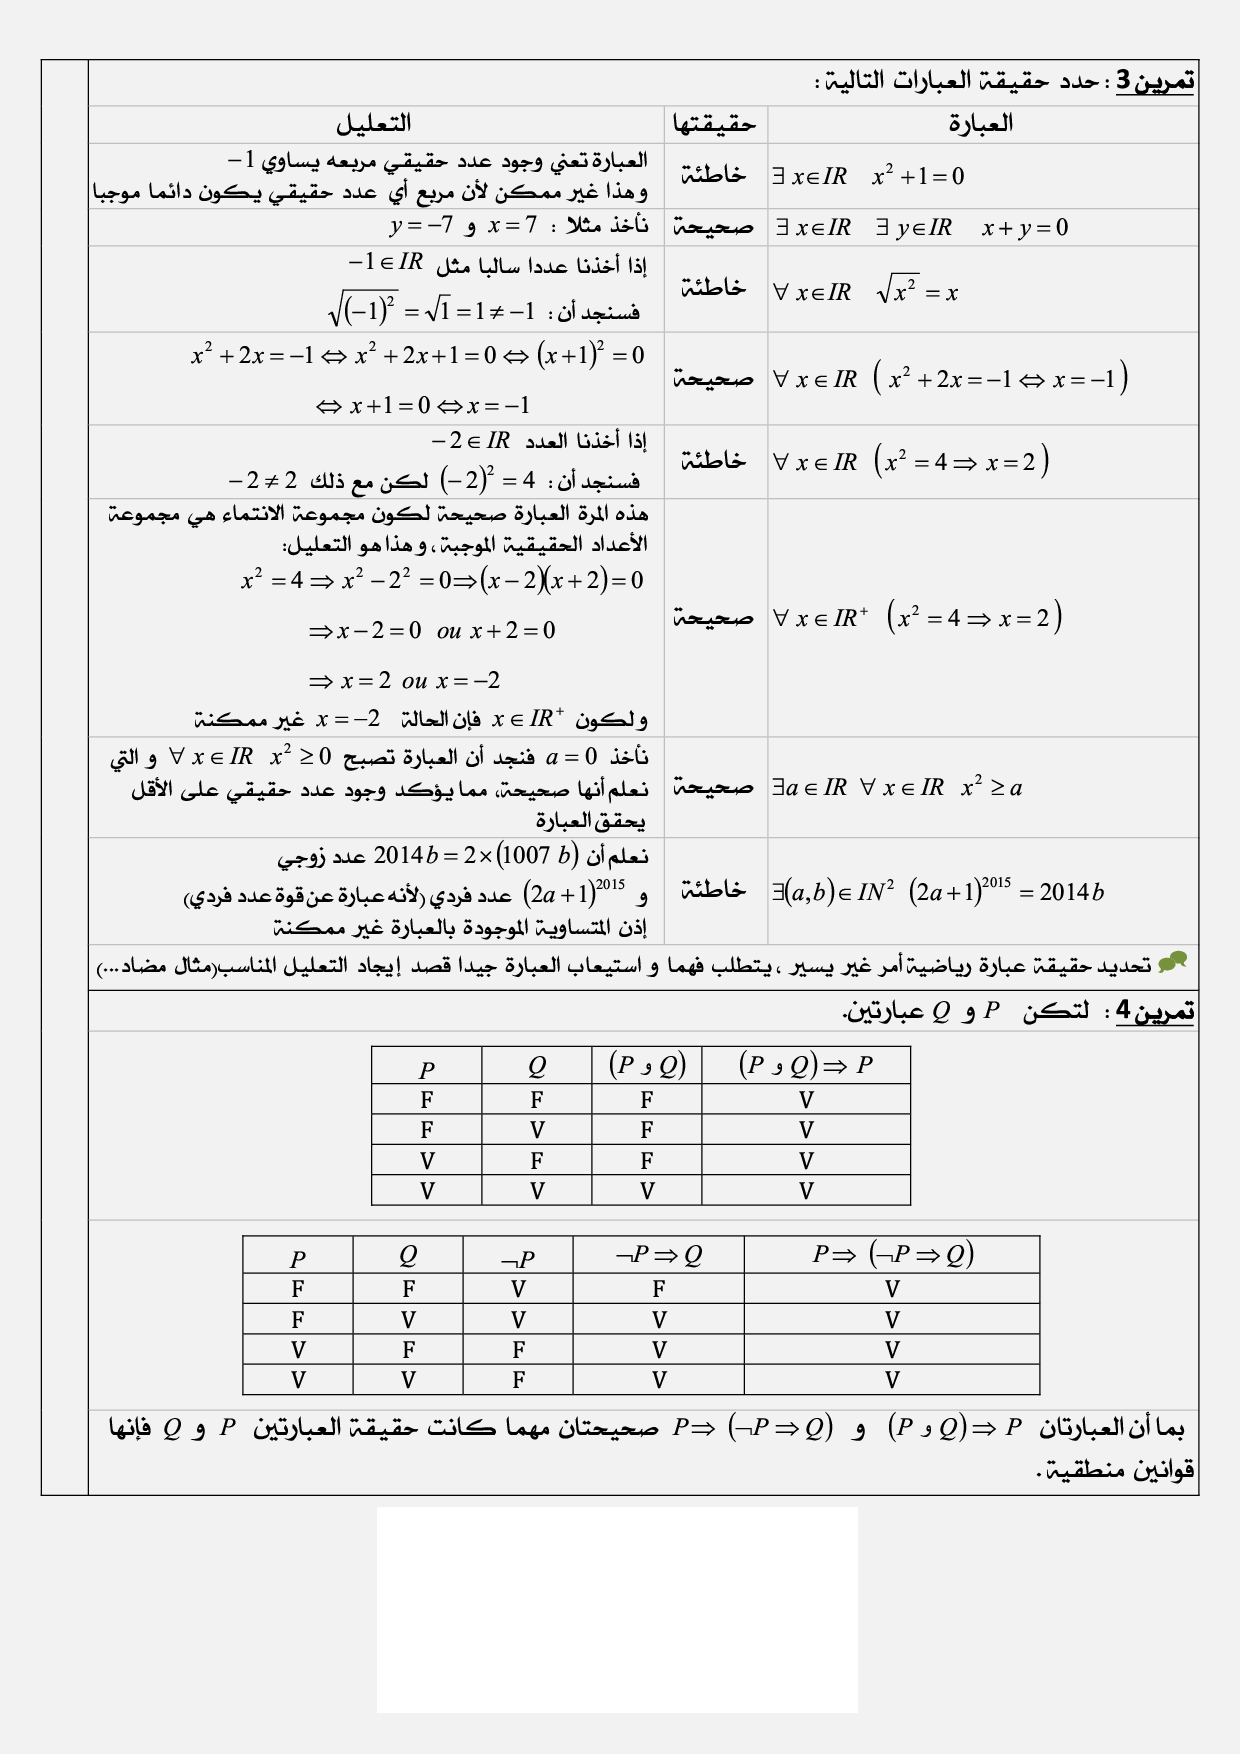 تمرين 3 : حدد حقيقة العبارات التالية :
العبارة حقيقتها التعليل
∃ x∈IR x² +1 = 0 خاطئة العبارة تعني وجود عدد حقيقي مربعه يساوي −1
وهذا غير ممكن لأن مربع أي عدد حقيقي يكون دائما موجبا
∃ x∈IR ∃ y∈IR x + y = 0 صحيحة نأخذ مثلا : x = 7 و y = −7
∀ x∈IR √(x²) = x خاطئة إذا أخذنا عددا سالبا مثل −1∈ IR
فسنجد أن : √((−1)²) = √1 = 1 ≠ −1
∀ x∈IR ( x² + 2x = −1 ⇔ x = −1 ) صحيحة x² + 2x = −1 ⇔ x² + 2x +1 = 0 ⇔ (x+1)² = 0
⇔ x +1 = 0 ⇔ x = −1
∀ x∈IR (x² = 4 ⇒ x = 2 ) خاطئة إذا أخذنا العدد −2∈ IR
فسنجد أن : (−2)² = 4 لكن مع ذلك −2 ≠ 2
∀ x∈IR⁺ (x² = 4 ⇒ x = 2 ) صحيحة هذه المرة العبارة صحيحة لكون مجموعة الانتماء هي مجموعة
الأعداد الحقيقية الموجبة ، وهذا هو التعليل:
x² = 4 ⇒ x² − 2² = 0 ⇒ (x − 2)(x + 2) = 0
⇒ x − 2 = 0 ou x + 2 = 0
⇒ x = 2 ou x = −2
ولكون x∈ IR⁺ فإن الحالة x = −2 غير ممكنة
∃a∈IR ∀ x∈IR x² ≥ a صحيحة نأخذ a = 0 فنجد أن العبارة تصبح ∀ x∈IR x² ≥ 0 و التي
نعلم أنها صحيحة، مما يؤكد وجود عدد حقيقي على الأقل
يحقق العبارة
∃(a,b)∈ IN² (2a +1)²⁰¹⁵ = 2014b خاطئة نعلم أن 2014b = 2×(1007 b) عدد زوجي
و (2a +1)²⁰¹⁵ عدد فردي (لأنه عبارة عن قوة عدد فردي)
إذن المتساوية الموجودة بالعبارة غير ممكنة
تحديد حقيقة عبارة رياضية أمر غير يسير ، يتطلب فهما و استيعاب العبارة جيدا قصد إيجاد التعليل المناسب(مثال مضاد...)
تمرين 4 : لتكن P و Q عبارتين.
P Q (P و Q) (P و Q) ⇒ P
F F F V
F V F V
V F F V
V V V V
P Q ¬P ¬P ⇒ Q P ⇒ (¬P ⇒ Q)
F F V F V
F V V V V
V F F V V
V V F V V
بما أن العبارتان (P و Q) ⇒ P و P ⇒ (¬P ⇒ Q) صحيحتان مهما كانت حقيقة العبارتين P و Q فإنها
قوانين منطقية .